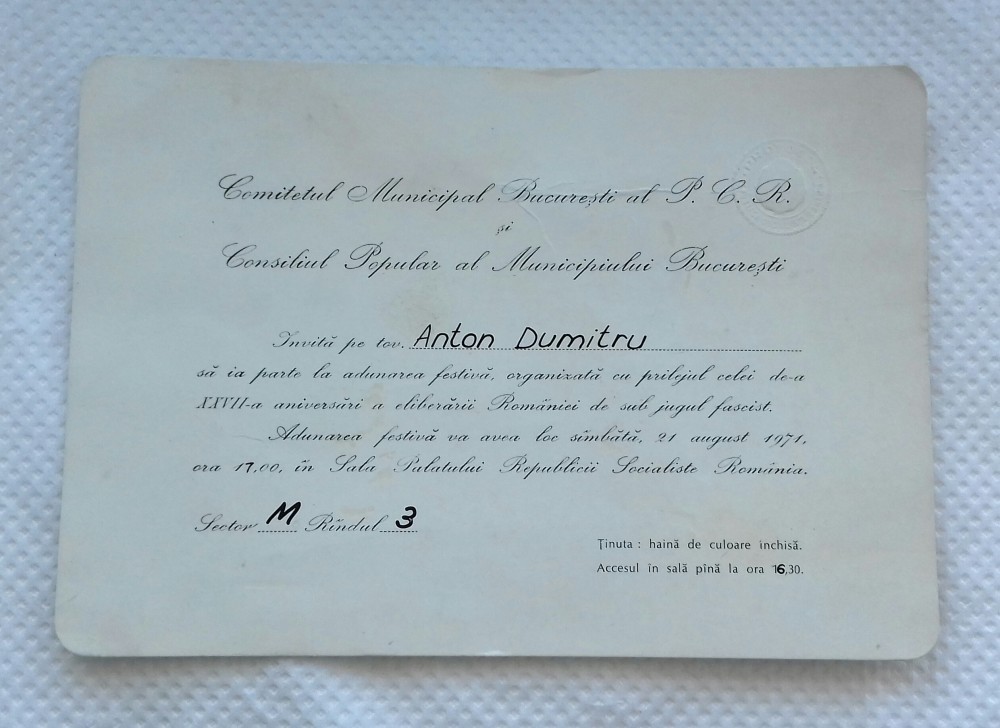 Comitetul Municipal București al P. C. R.
și
Consiliul Popular al Municipiului București
Invită pe tov. Anton Dumitru
să ia parte la adunarea festivă, organizată cu prilejul celei de-a
XXVII-a aniversări a eliberării României de sub jugul fascist.
Adunarea festivă va avea loc sîmbătă, 21 august 1971,
ora 17,00, în Sala Palatului Republicii Socialiste România.
Sector M Rîndul 3
Ținuta : haină de culoare închisă.
Accesul în sală pînă la ora 16,30.